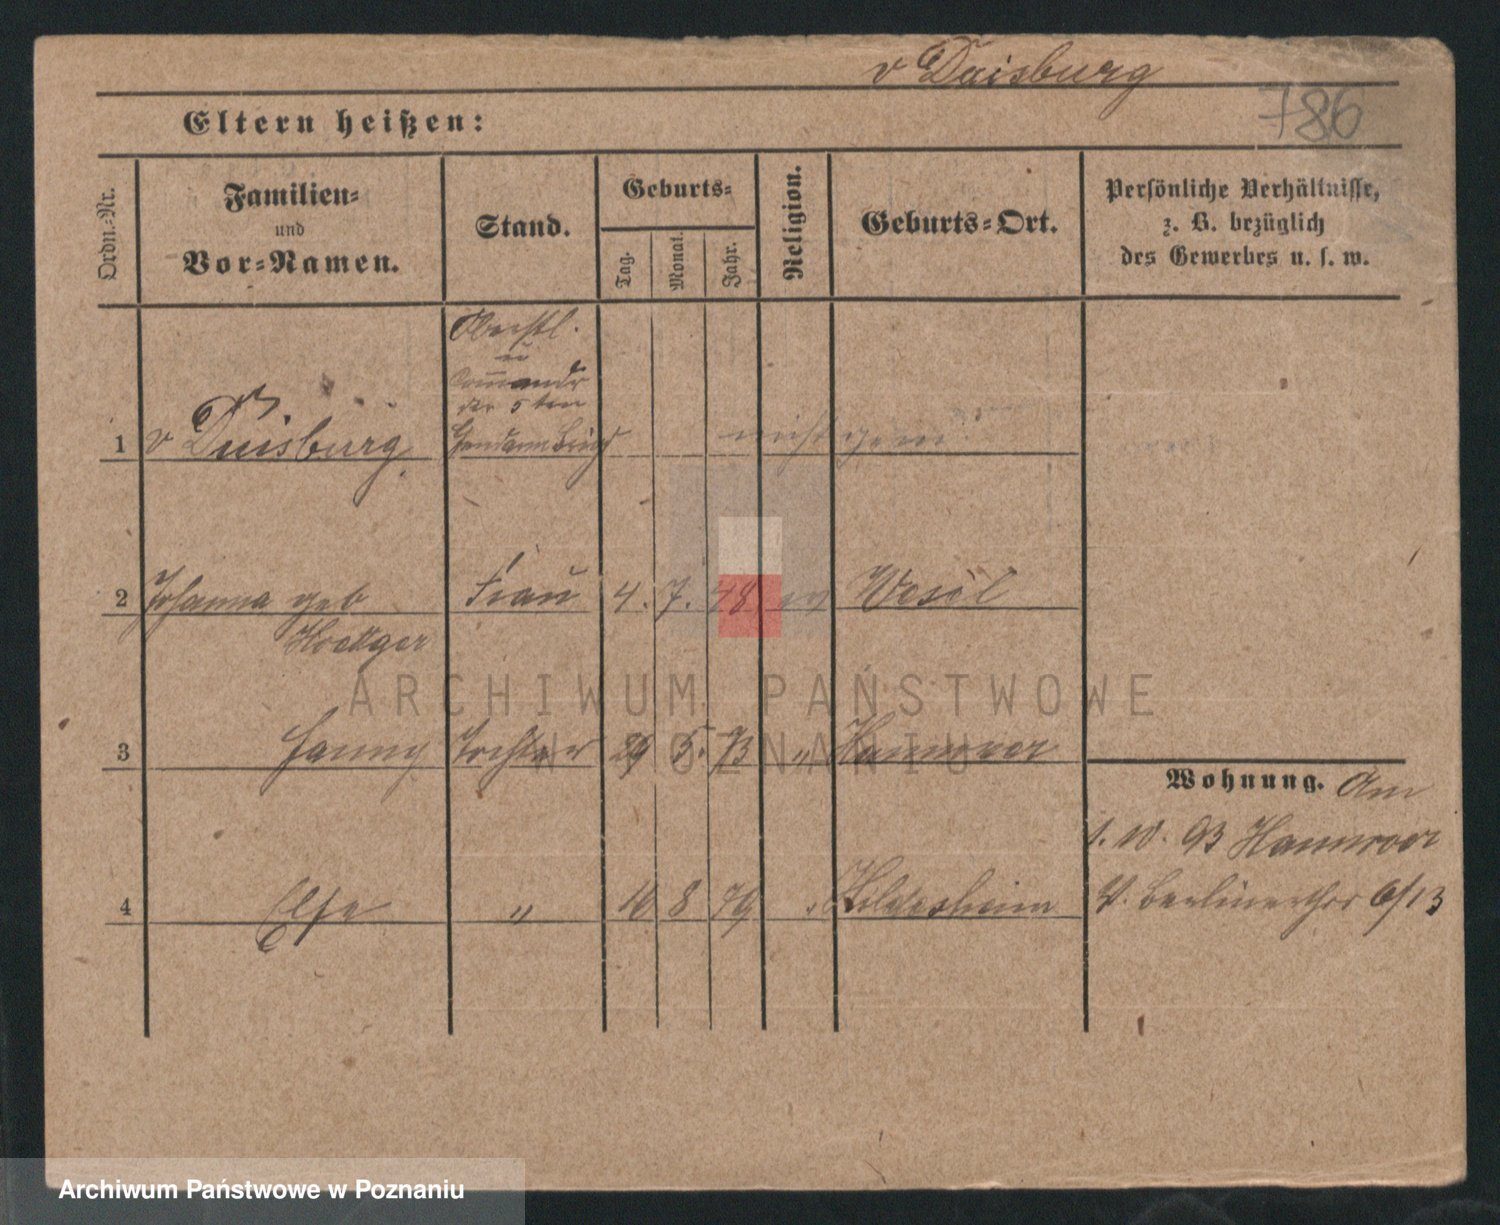 v Duisburg
786
Eltern heißen:
Ordn.-Nr.
Familien-
und
Vor-Namen.
Stand.
Geburts-
Tag.
Monat.
Jahr.
Religion.
Geburts-Ort.
Persönliche Verhältnisse,
z. B. bezüglich
des Gewerbes u. s. w.
Oberstl.
u
Commandr
der 5 ten
1 v Duisburg
2 Johanna geb Frau 4. 7. 48 ev Wesel
ARCHIWUM PAŃSTWOWE
W POZNANIU
3 Fanny Tochter 29 5. 73 „ Hannover
Wohnung. Am
1. 10. 93 Hannover
4 Else „ 10 8 79 „ Hildesheim V. Berlinerthor 6/13
Archiwum Państwowe w Poznaniu